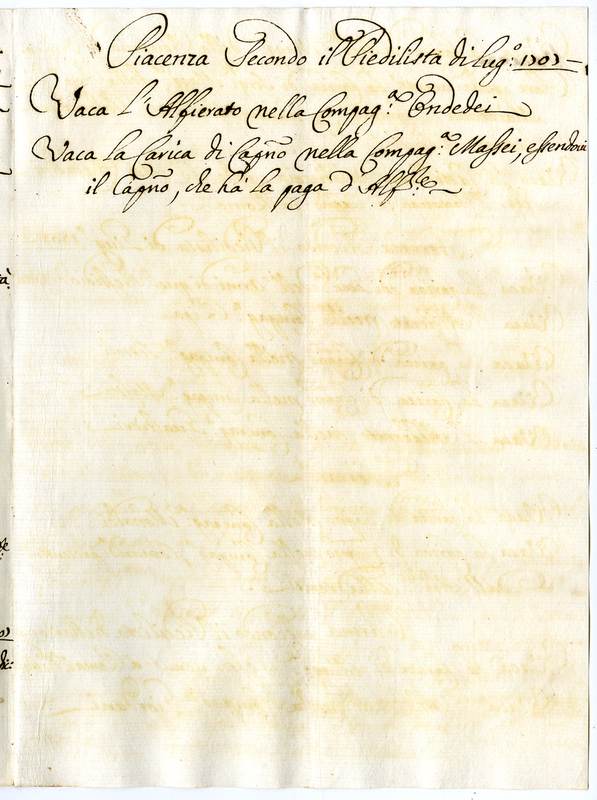 Piacenza Secondo il Piedilista di Lug.º 1707 –
Vaca l'Alfierato nella Compag.ª Ondedei
Vaca la Carica di Cap̃no nella Compag.ª Massei, essendovi
il Cap̃no, che hà la paga d'Alf.re